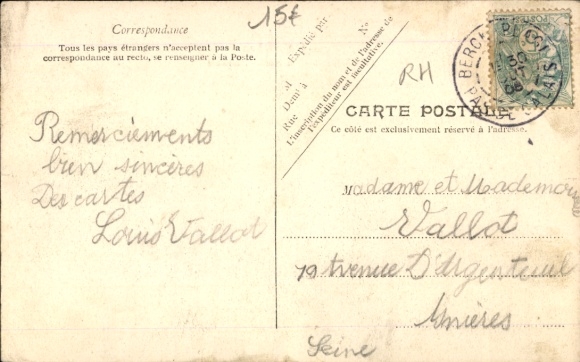 15€
Correspondance
Tous les pays étrangers n'acceptent pas la
correspondance au recto, se renseigner à la Poste.
Remerciements
bien sincères
Des cartes
Louis Vallot
Expédié par
M
Demt à
Rue No
L'inscription du nom et de l'adresse de
l'expéditeur est facultative.
RH
BERCK PLAGE
PAS DE CALAIS
30
CARTE POSTALE
Ce côté est exclusivement réservé à l'adresse.
Madame et Mademois
Vallot
79 Avenue D'Argenteuil
Asnières
Seine